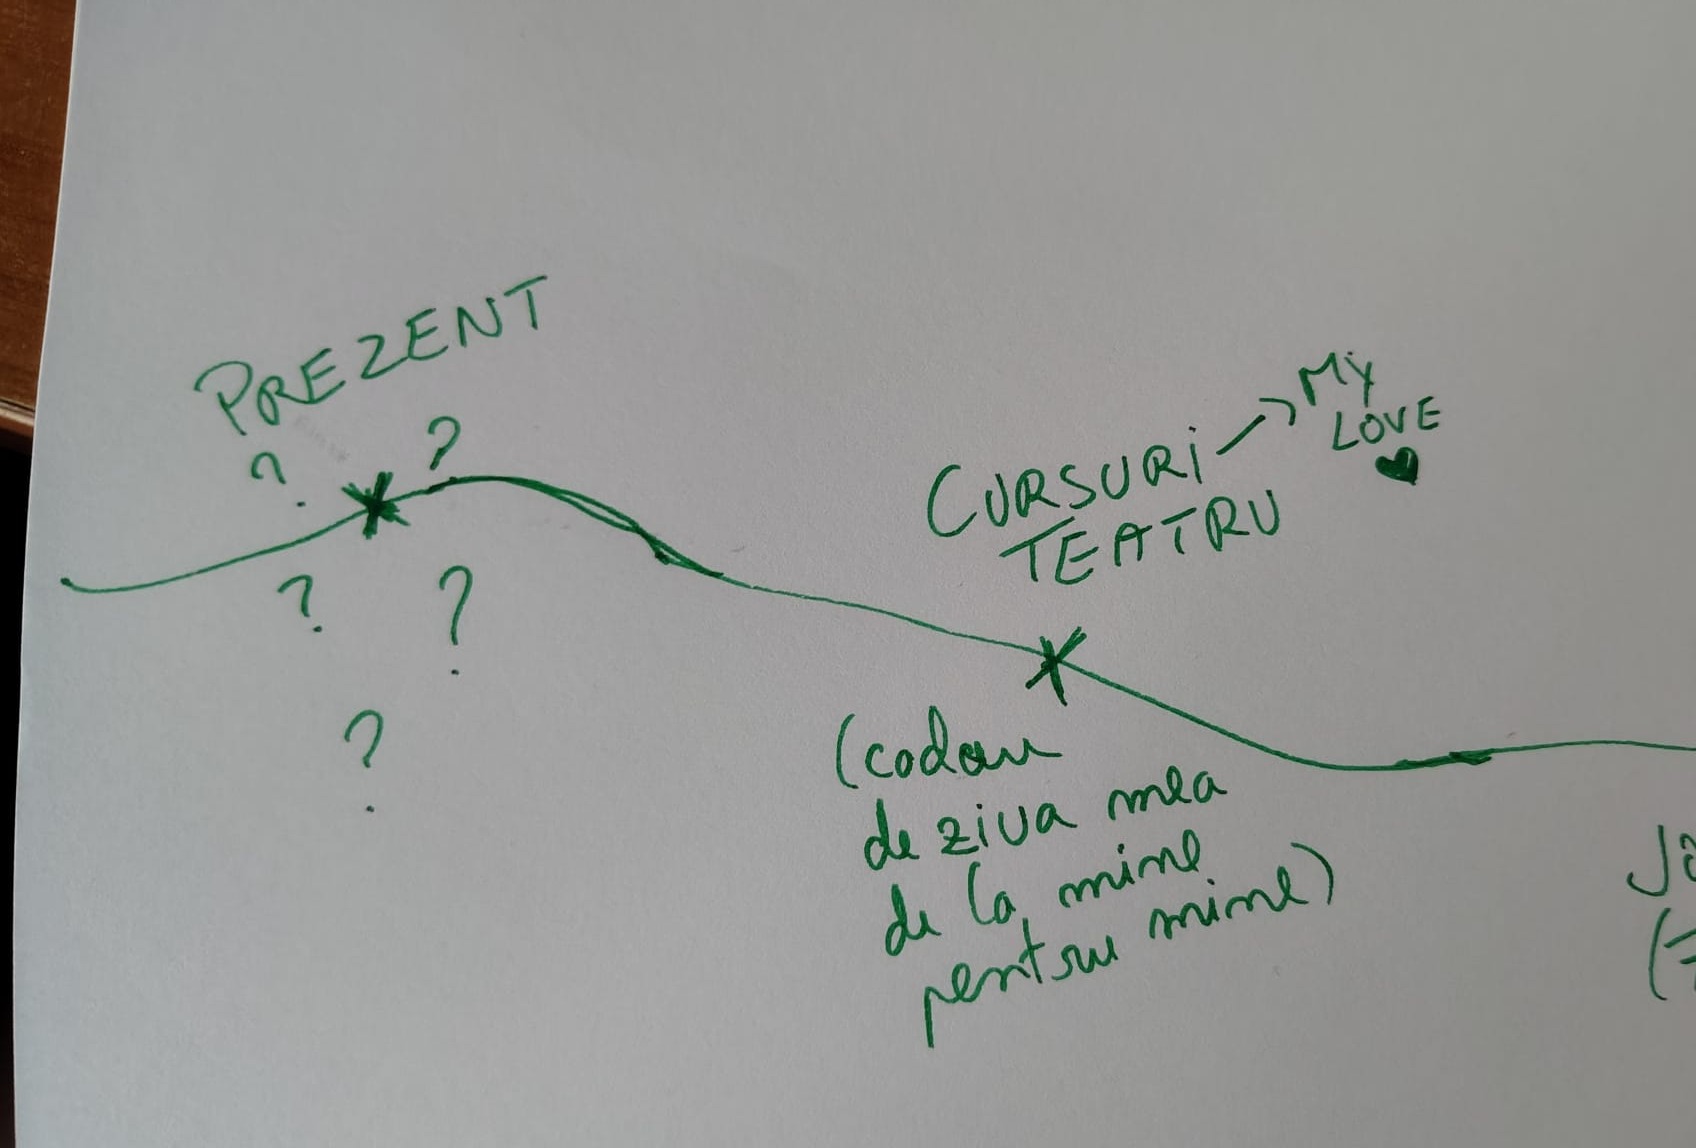 PREZENT
? ?
? ?
?
CURSURI → MY
LOVE
♥
TEATRU
(cadou
de ziua mea
de la mine
pentru mine)